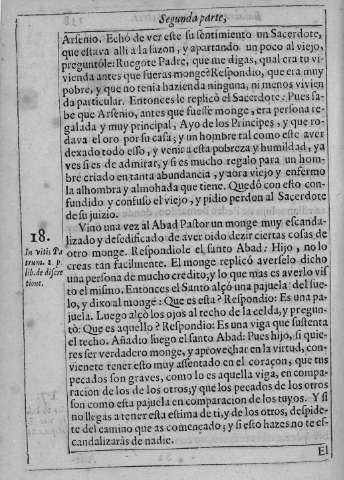 Segunda parte,
Arsenio. Echó de ver este su sentimiento un Sacerdote,
que estava alli a la sazon, y apartando un poco al viejo,
preguntóle: Ruegote Padre, que me digas, qual era tu vi
vienda antes que fueras monge? Respondio, que era muy
pobre, y que no tenia hazienda ninguna, ni menos vivien
da particular. Entonces le replicó el Sacerdote: Pues sa-
be que Arsenio, antes que fuesse monge, era persona re
galada y muy principal, Ayo de los Principes, y que ro-
dava el oro por su casa; y un hombre tal como este aver
dexado todo esso, y venir a esta pobreza y humildad, ya
ves si es de admirar, y si es mucho regalo para un hom-
bre criado en tanta abundancia, y aora viejo y enfermo
la alhombra y almohada que tiene. Quedó con esto con-
fundido y confuso el viejo, y pidio perdon al Sacerdote
de su juizio.
18.
In vitis Pa
trum. 2. p.
lib. de discre
tione.
Vino una vez al Abad Pastor un monge muy escanda-
lizado y desedificado de aver oido dezir ciertas cosas de
otro monge. Respondiole el santo Abad: Hijo, no lo
creas tan facilmente. El monge replicó averselo dicho
una persona de mucho credito, y lo que mas es averlo vis
to el mismo. Entonces el Santo alçó una pajuela del sue-
lo, y dixo al monge: Que es esta? Respondio: Es una pa-
juela. Luego alçó los ojos al techo de la celda, y pregun-
tò: Que es aquello? Respondio: Es una viga que sustenta
el techo. Añadio luego el santo Abad: Pues hijo, si quie-
res ser verdadero monge, y aprovechar en la virtud, con-
vienete tener esto muy assentado en el coraçon, que tus
pecados son graves, como lo es aquella viga, en compa-
racion de los de los otros; y que los pecados de los otros
son como esta pajuela en comparacion de los tuyos. Y si
no llegas a tener esta estima de ti, y de los otros, despide-
te del camino que as començado; y si esto hazes no te es-
candalizarás de nadie.
El